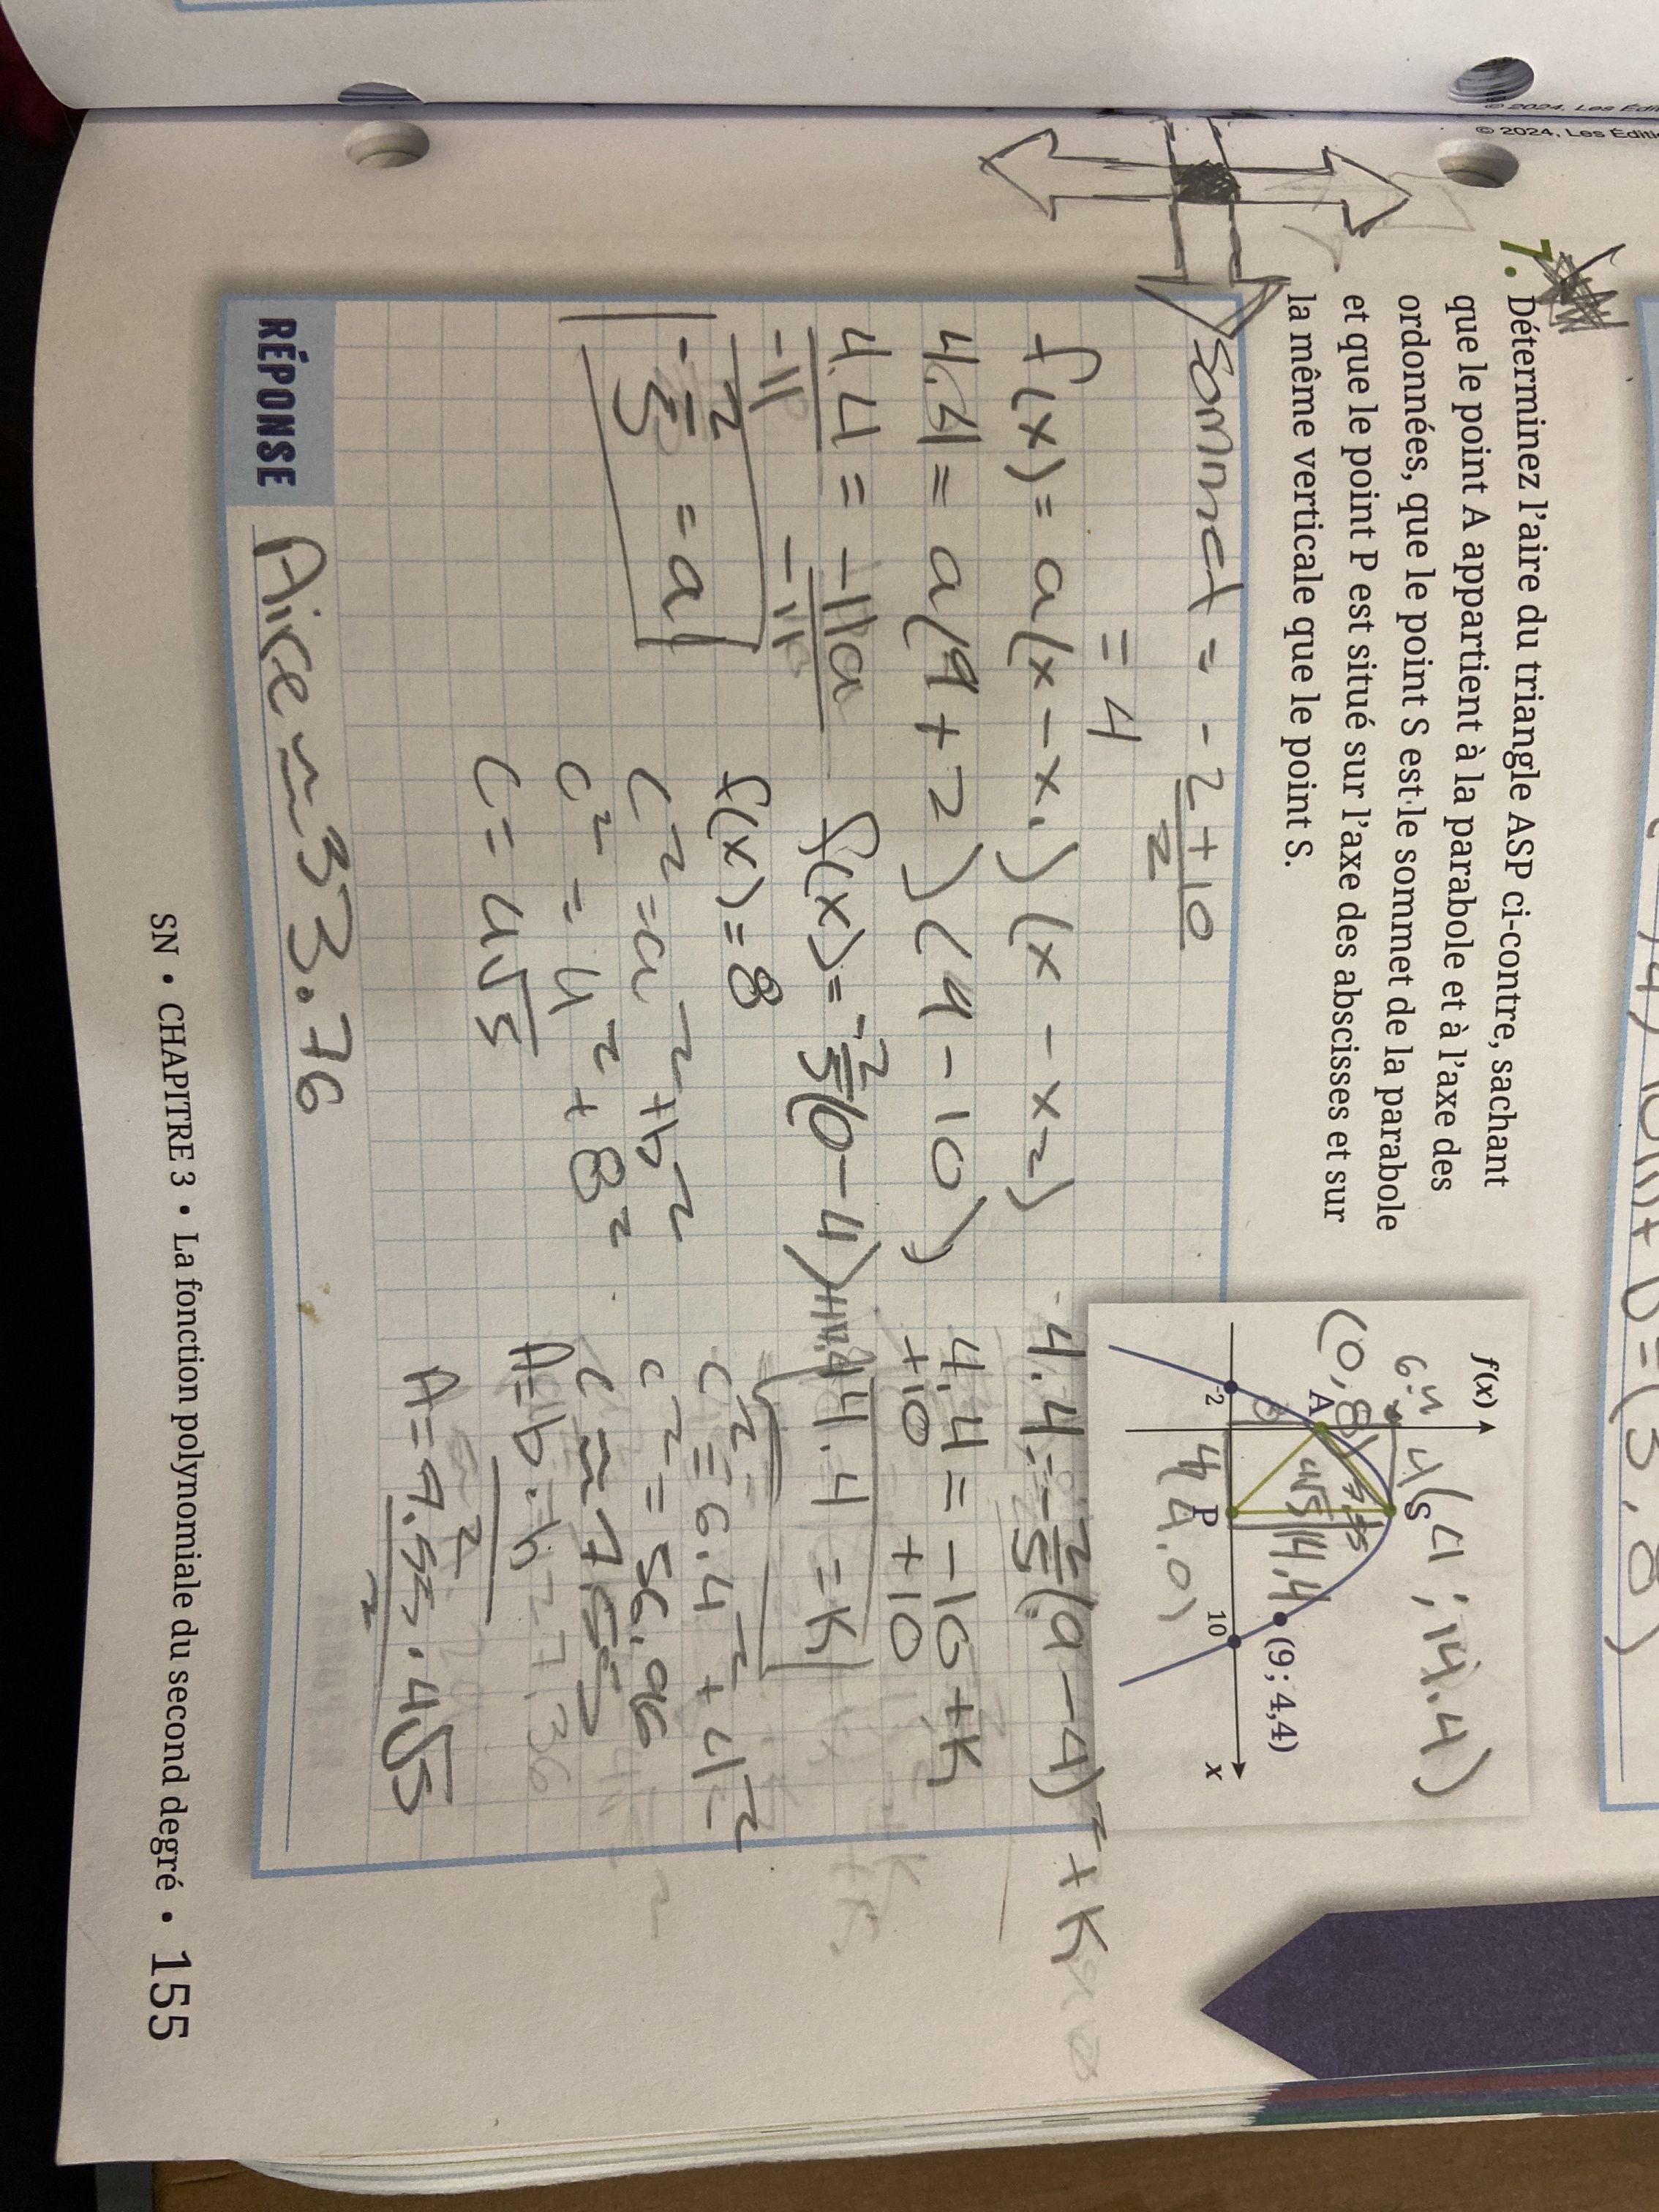 © 2024, Les Éditi
© 2024, Les Éditi
7. Déterminez l'aire du triangle ASP ci-contre, sachant
que le point A appartient à la parabole et à l'axe des
ordonnées, que le point S est le sommet de la parabole
et que le point P est situé sur l'axe des abscisses et sur
la même verticale que le point S.
f(x)
(4; 14.4)
S
6.4
4
(0,8)
A
8
4√5
14.4
(9; 4,4)
-2
4
P
10
x
(4,0)
sommet = -2+10
2
= 4
f(x) = a(x-x₁)(x-x₂)
4.4 = a(9+2)(9-10)
4.4 = -11a
-11 -11
-2/5 = a
f(x) = -2/5(0-4)²+14.4
f(x) = 8
c² = a² + b²
c² = 4² + 8²
c = 4√5
4.4 = -2/5(9-4)² + k
4.4 = -10 + k
+10 +10
14.4 = k
c² = 6.4² + 4²
c² = 56.96
c ≈ 7.55
A = b·h
2
A = 7.55 · 4√5
2
RÉPONSE Aire ≈ 33.76
SN • CHAPITRE 3 • La fonction polynomiale du second degré • 155